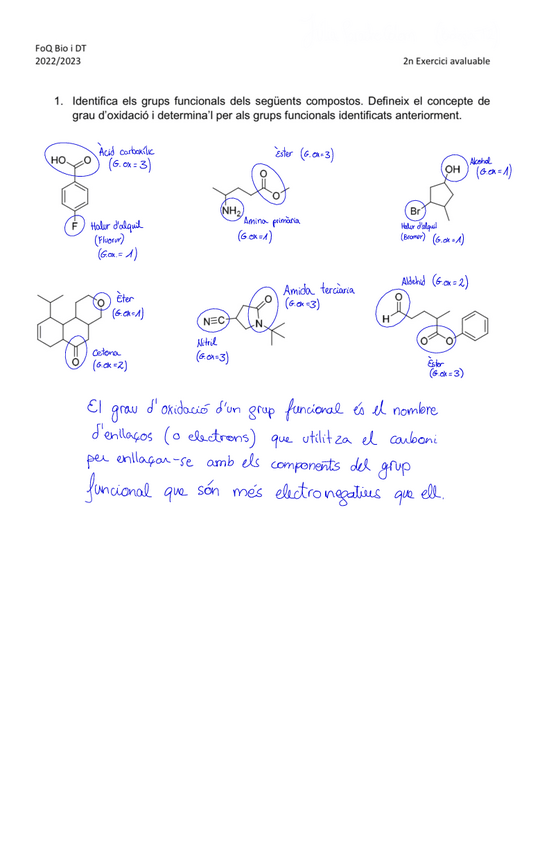 FoQ Bio i DT
2022/2023
2n Exercici avaluable
1. Identifica els grups funcionals dels següents compostos. Defineix el concepte de
grau d'oxidació i determina'l per als grups funcionals identificats anteriorment.
Àcid carboxílic
(G.ox = 3)
HO
O
F
Halur d'alquil
(Fluorur)
(G.ox. = 1)
Èster (G.ox=3)
O
O
NH2
Amina primària
(G.ox=1)
OH
Alcohol
(G.ox=1)
Br
Halur d'alquil
(Bromur) (G.ox=1)
Èter
(G.ox=1)
O
O
Cetona
(G.ox=2)
Amida terciària
(G.ox=3)
O
N≡C
N
Nitril
(G.ox=3)
Aldehid (G.ox=2)
O
H
O
O
Èster
(G.ox=3)
El grau d'oxidació d'un grup funcional és el nombre
d'enllaços (o electrons) que utilitza el carboni
per enllaçar-se amb els components del grup
funcional que són més electronegatius que ell.